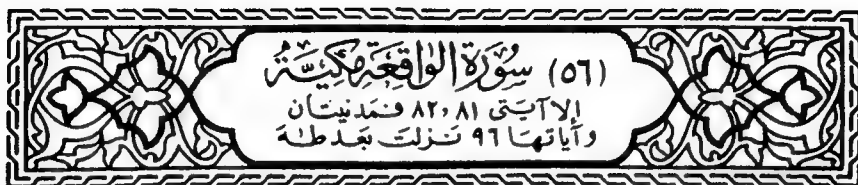 (٥٦) سُورَةُ الوَاقِعَةِ مَكِّيَّةٌ
إلا آيتى ٨١ و ٨٢ فمدنيتان
وآياتها ٩٦ نزلت بعد طه